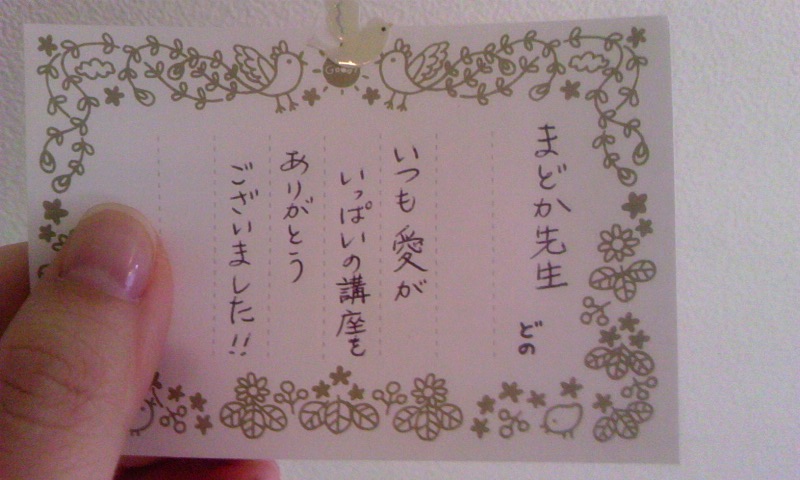 まどか先生
どの
いつも愛が
いっぱいの講座を
ありがとう
ございました!!